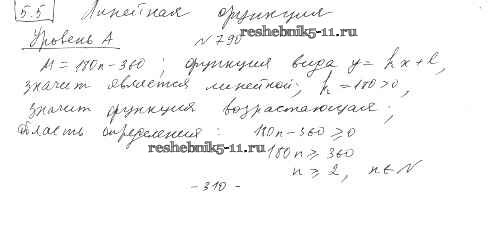 5.5 Линейная функция
Уровень А
№ 790
reshebnik5-11.ru
M = 180n - 360; функция вида y = kx + l,
значит является линейной; k = 180 > 0,
значит функция возрастающая;
область определения: 180n - 360 ≥ 0
reshebnik5-11.ru
180n ≥ 360
n ≥ 2, n ∈ N
- 310 -